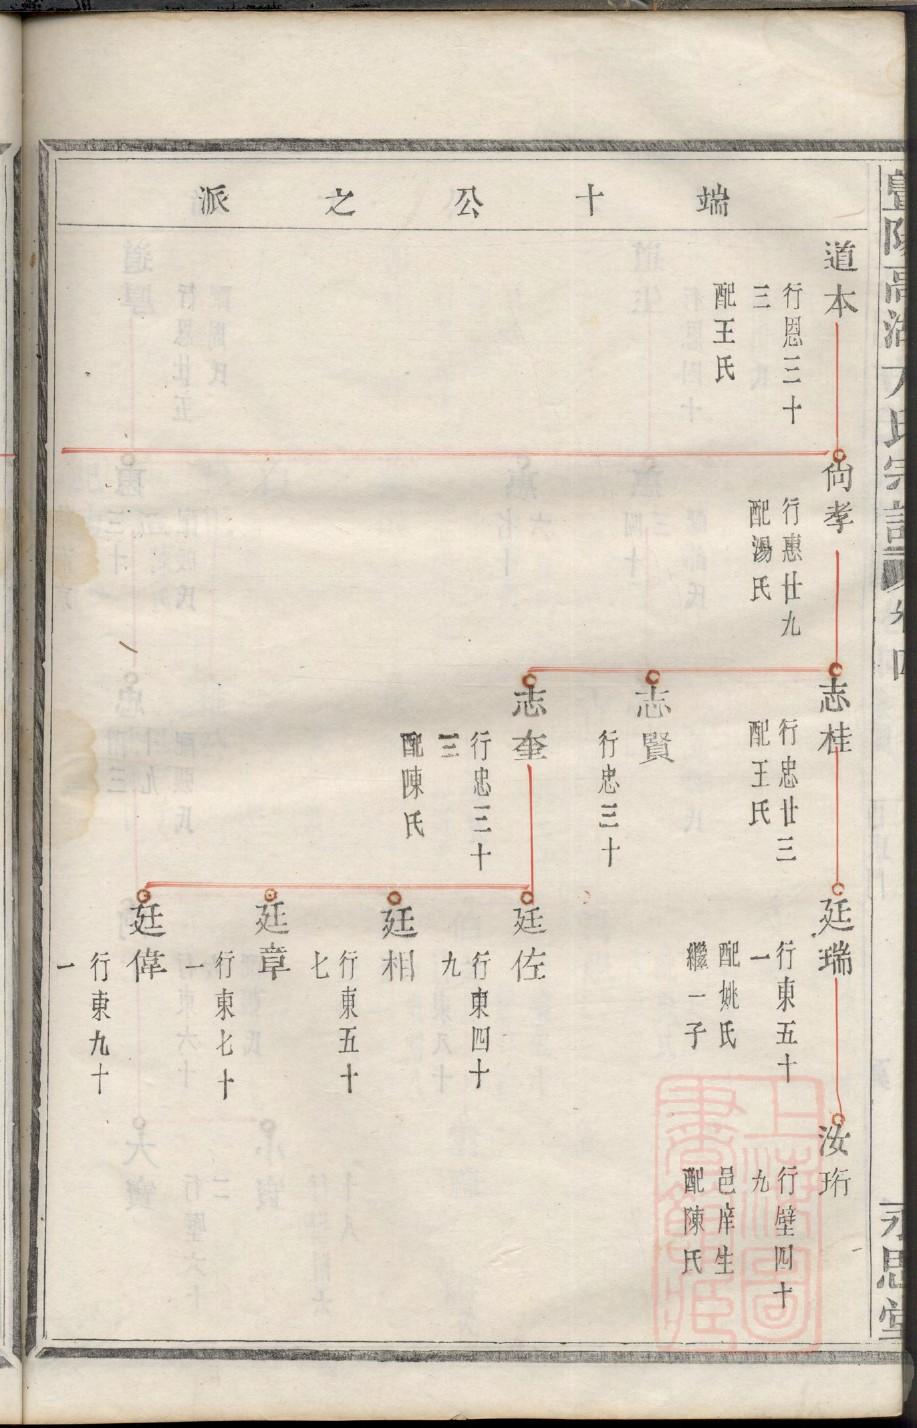 端十公之派
道本
行恩三十
三
配王氏
尙孝
行惠廿九
配湯氏
志桂
行忠廿三
配王氏
志賢
行忠三十
志奎
行忠三十
三
配陳氏
廷瑞
行東五十
一
配姚氏
繼一子
廷佐
行東四十
九
廷相
行東五十
七
廷章
行東七十
一
廷偉
行東九十
一
汝珩
行壁四十
九
邑庠生
配陳氏
上海圖
書館藏